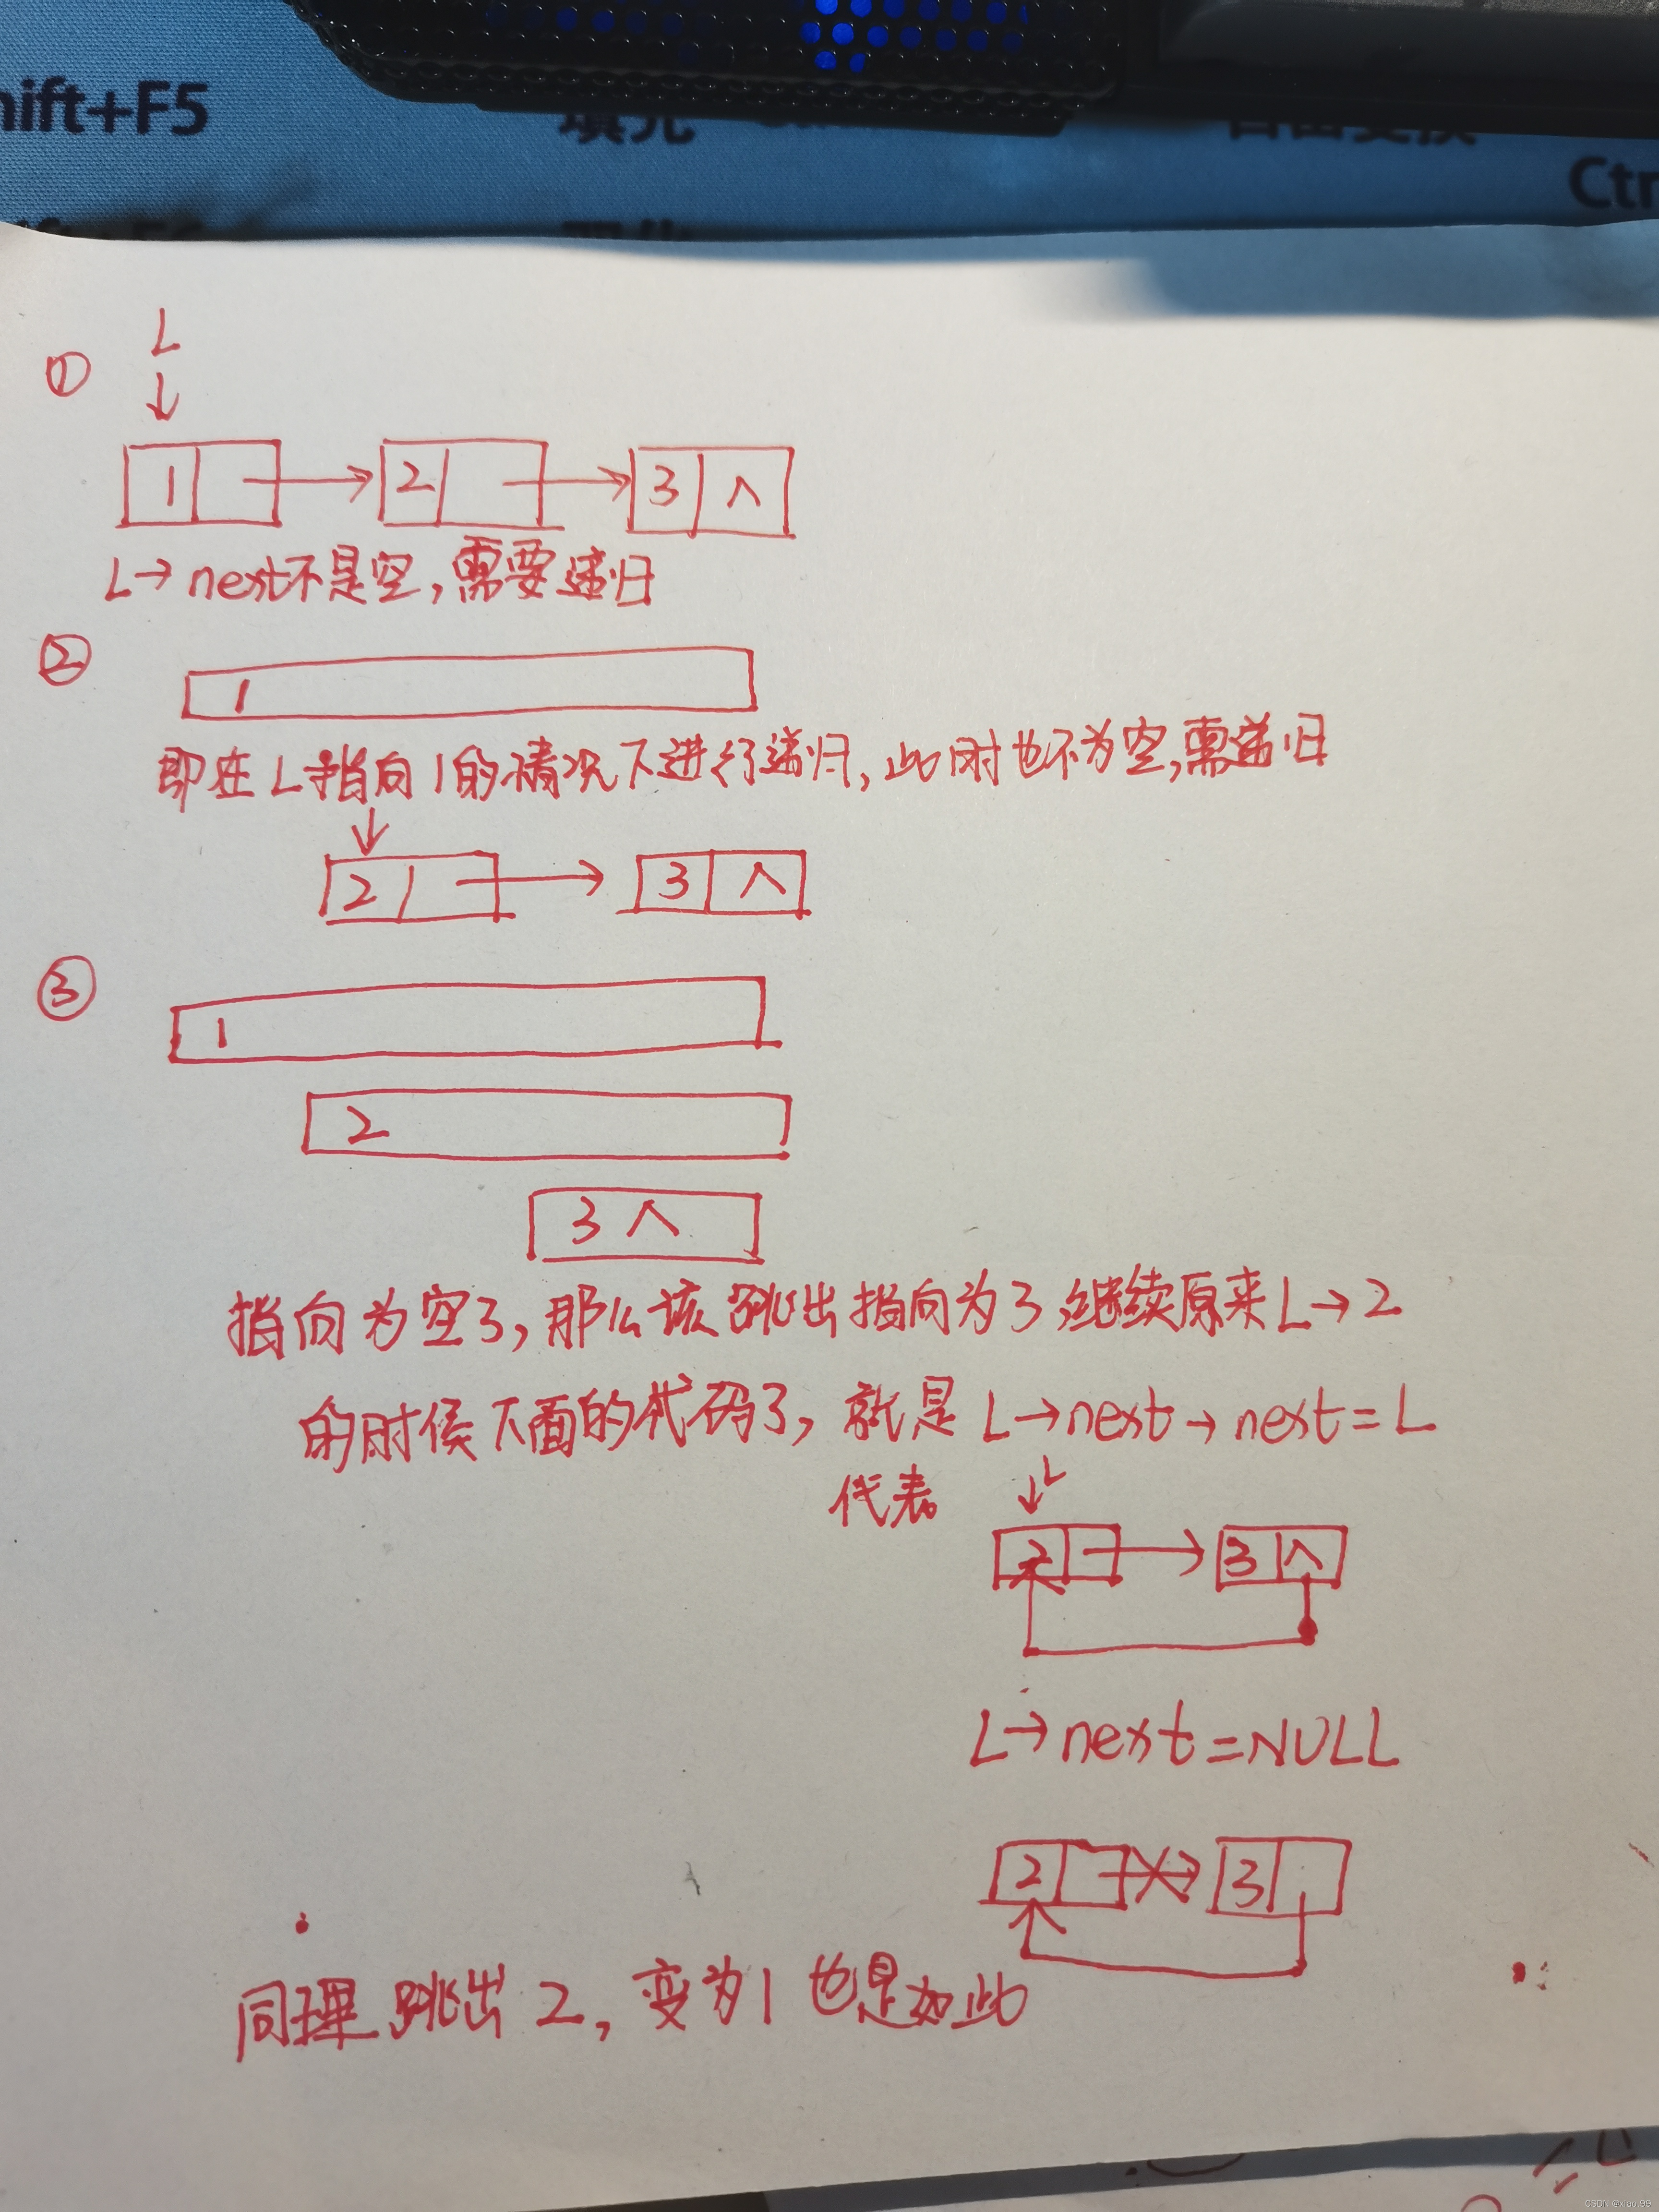 hift+F5
填充
Ctr
L
①
1
2
3 ∧
L→next不是空,需要递归
②
1
即在L指向1的情况下进行递归,此时也不为空,需递归
2
3 ∧
③
1
2
3 ∧
指向为空了,那么该跳出指向为3,继续原来L→2
的时候下面的代码了,就是L→next→next=L
代表
L
2
3 ∧
L→next=NULL
2
3
同理跳出2,变为1也是如此
CSDN @xiao.99